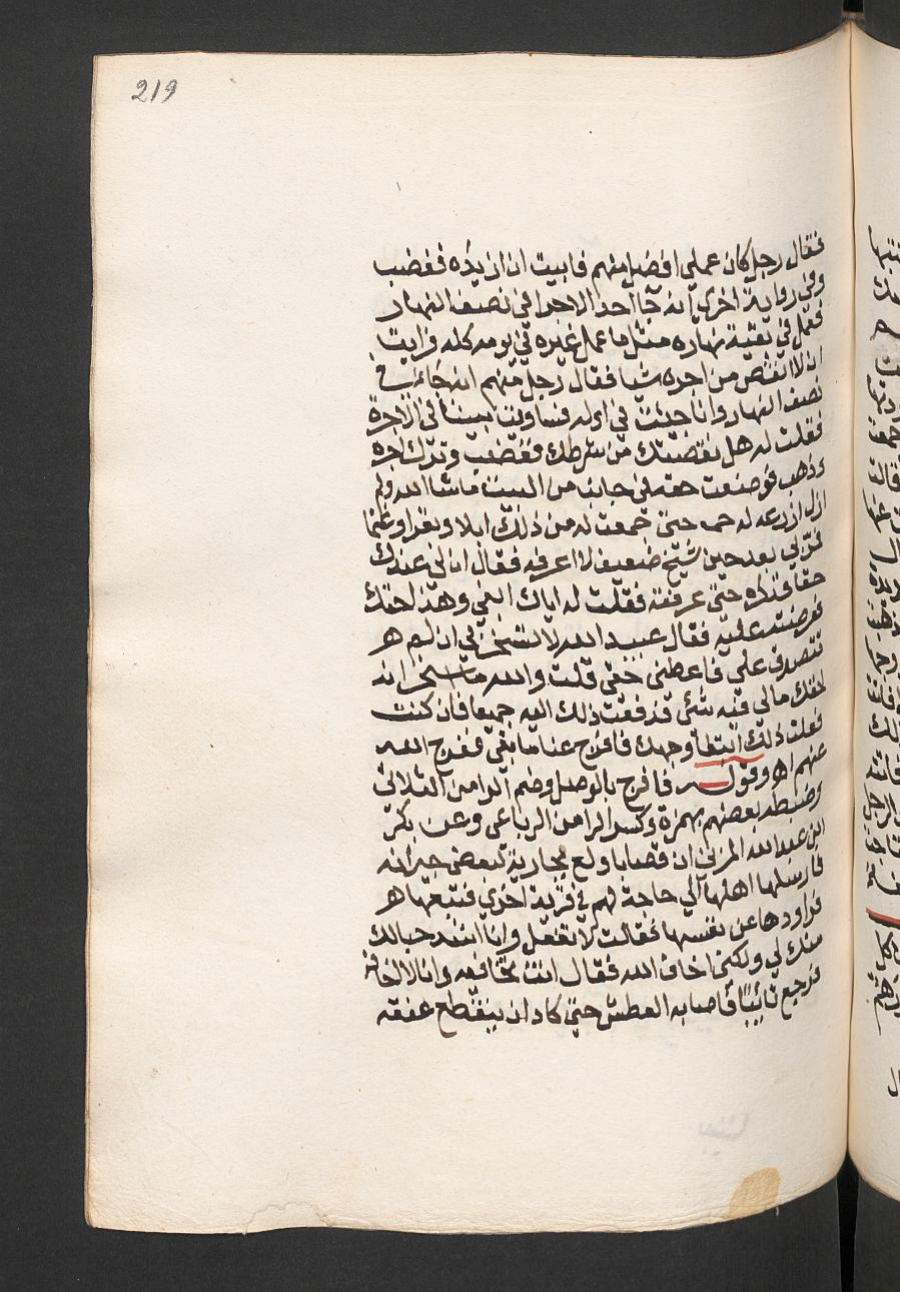 219
فقال رجل كان عملي افضل منهم فابيت ان ازيده فغضب
وفي رواية اخري انه جا احد الاجرا في نصف النهار
فعمل في بقية نهاره مثل ما عمل غيره في يومه كله فرايت
ان لا انقص من اجره شيا فقال رجل منهم انه جاء في
نصف النهار وانا جيئت في اوله فساويت بيننا في الاجرة
فقلت له هل نقصتك من شرطك فغضب وترك اجره
وذهب فوضعت حقه في جانب من البيت ماشا الله ولم
ازل ازرعه له حتي جمعت له من ذلك ابلا وبقرا وغنما
فمر بي بعد حين شيخ ضعيف لا اعرفه فقال ان لي عندك
حقا فذكره حتي عرفته فقلت له اياك ابغي وهذا حقك
فعرضته عليه فقال عبيد الله لا تسخر بي ان لم هر
تتصدق علي فاعطني حقي قلت والله ما اسخر انه
لحقك مالي فيه شي فدفعت ذلك اليه جميعا فان كنت
فعلت ذلك ابتغا وجهك فافرج عنا ما بقي ففرج الله
عنهم اه وقوله فافرج بالوصل وضم الرا من الثلاثي
وضبطه بعضهم بهمزة وكسر الرا من الرباعي وعن بكر
ابن عبد الله المزني ان قصابا ولع بجارية لبعض جيرانه
فارسلها اهلها الي حاجة لهم في قرية اخري فتبعها هر
فراودها عن نفسها فقالت لا تفعل وانا اشد حبا لك
منك لي ولكني اخاف الله فقال انت تخافيه وانا لا اخافه
فرجع تائبا فاصابه العطش حتي كاد ان ينقطع عنقه